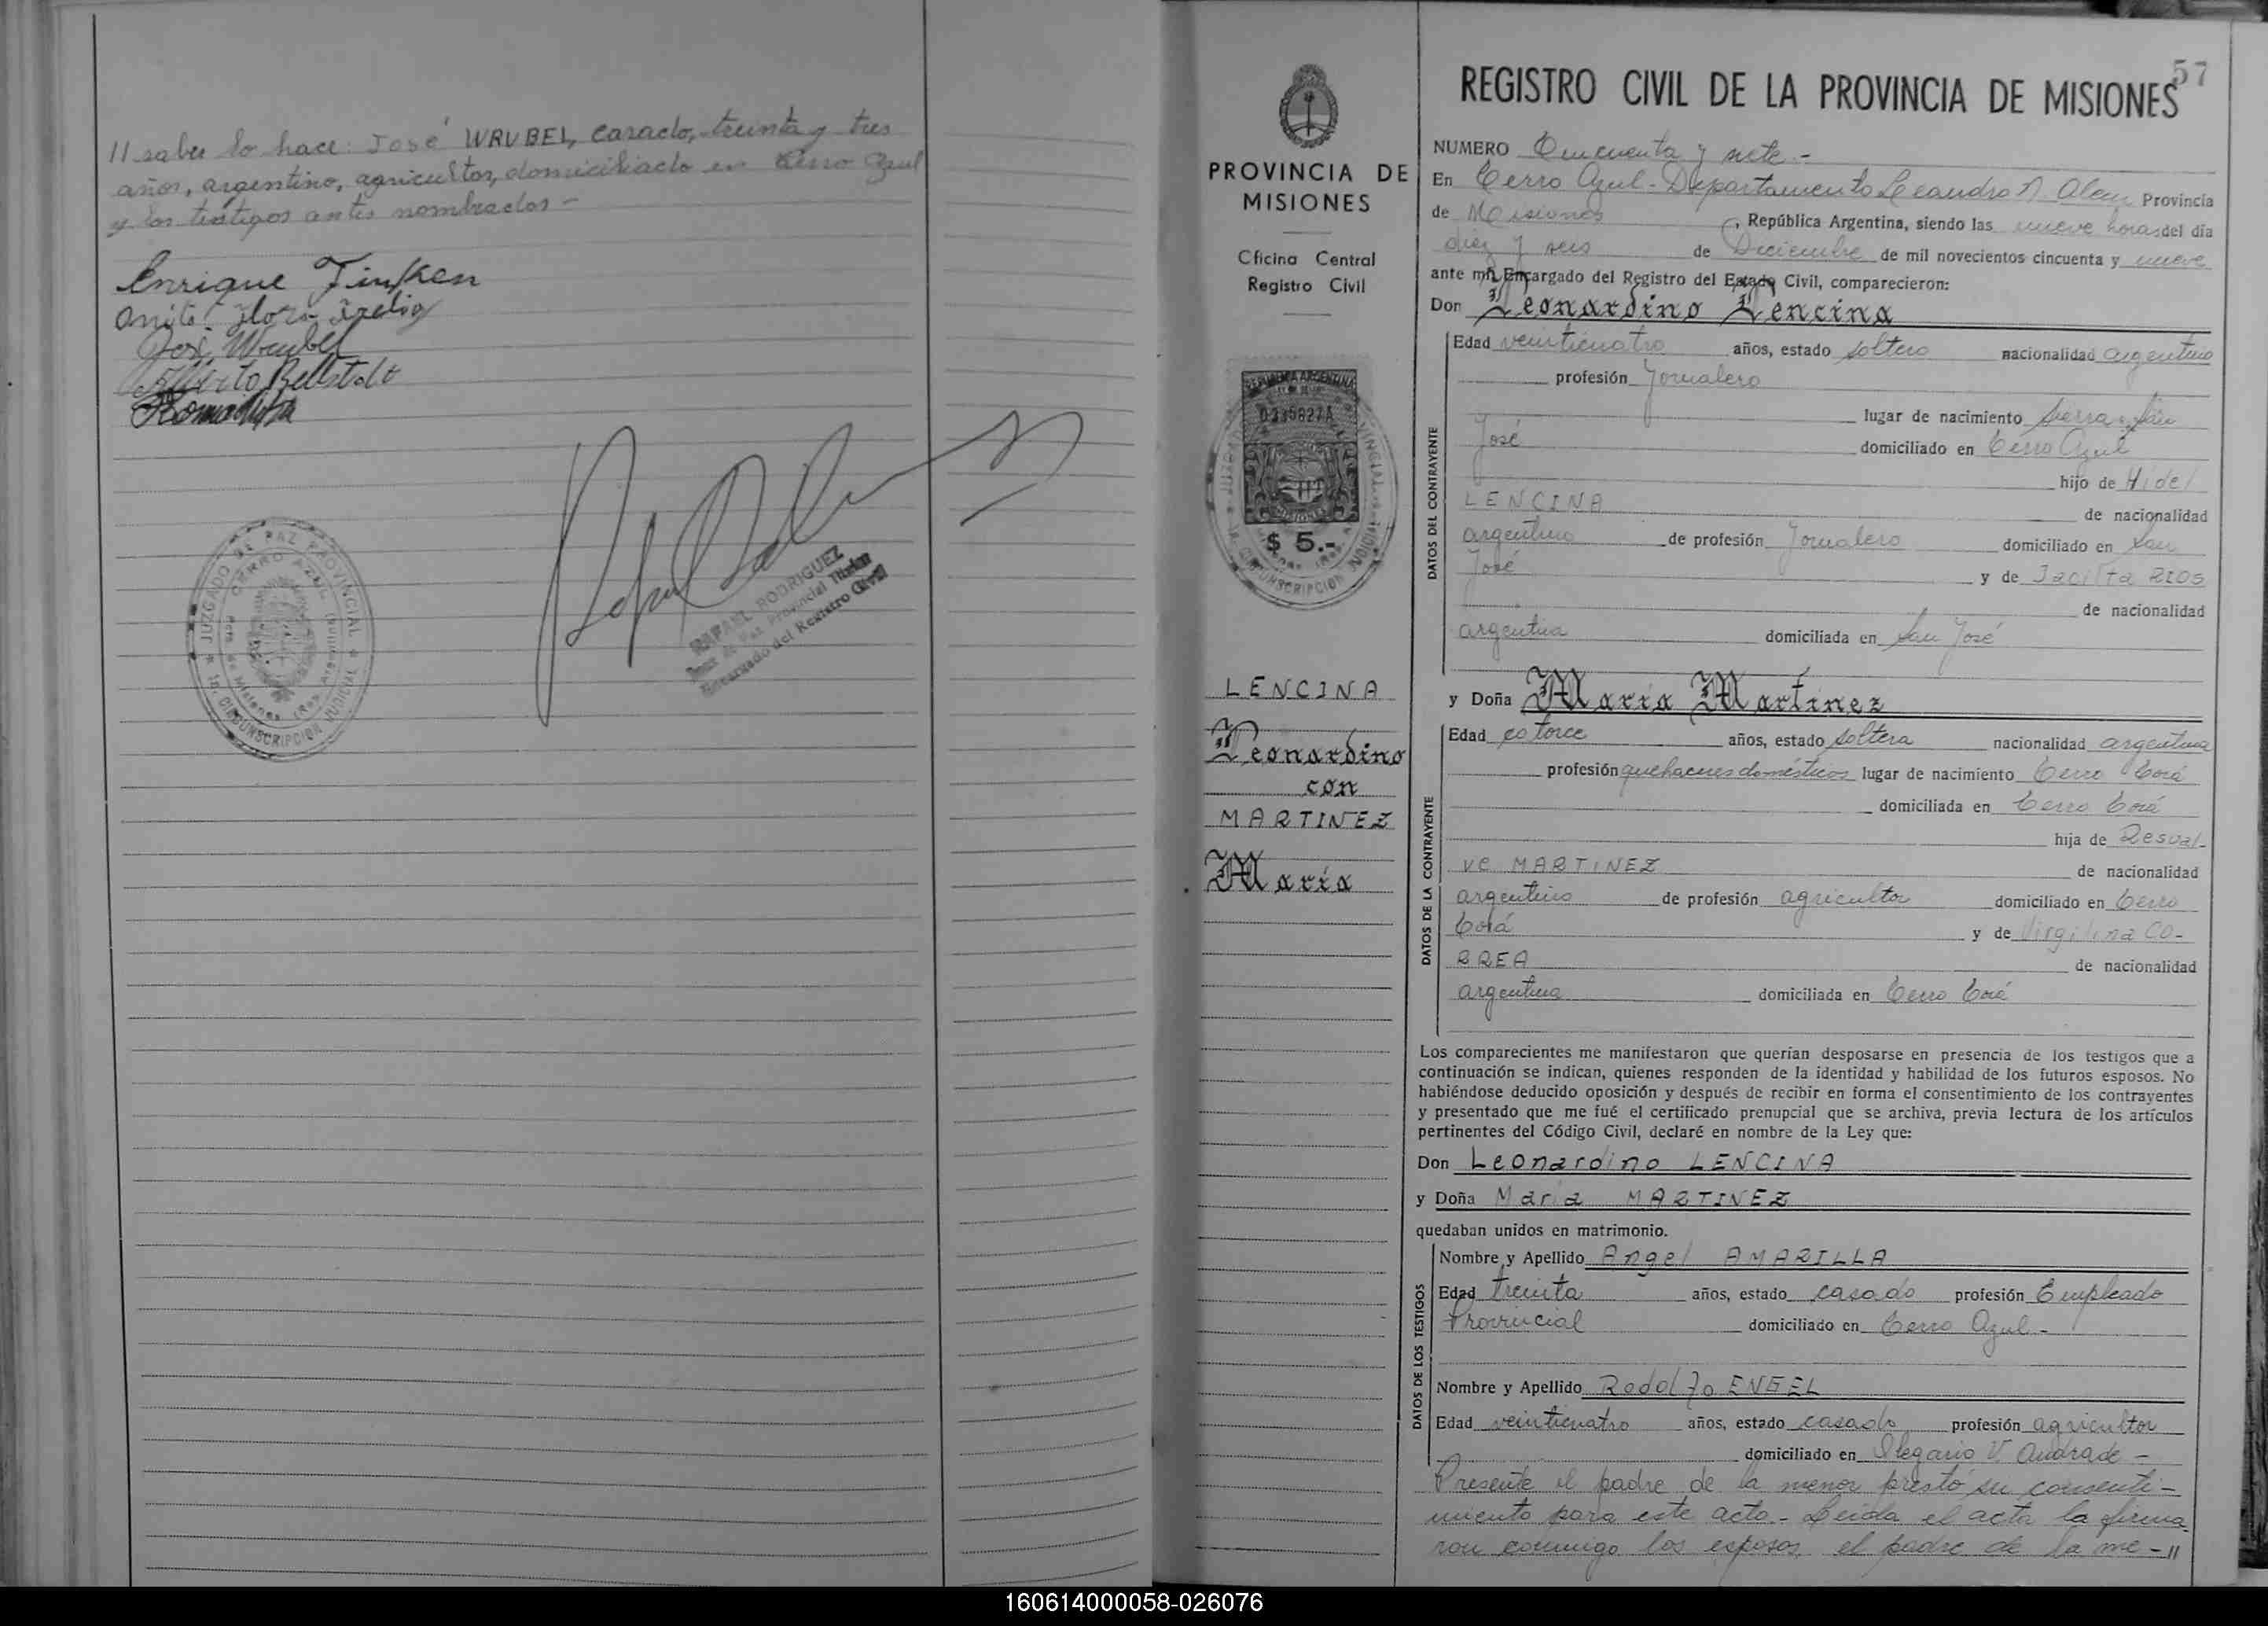 // saber lo hace: José WRUBEL, casado, treinta y tres
años, argentino, agricultor, domiciliado en Cerro Azul
y los testigos antes nombrados -
Enrique
José Wrubel
JUZGADO DE PAZ PROVINCIAL
CERRO AZUL
CIRCUNSCRIPCION JUDICIAL
RAFAEL RODRIGUEZ
Juez de Paz Provincial Titular
Encargado del Registro Civil
PROVINCIA DE
MISIONES
Oficina Central
Registro Civil
REPUBLICA ARGENTINA
MISIONES
$ 5.-
LENCINA
Leonardino
con
MARTINEZ
María
57
REGISTRO CIVIL DE LA PROVINCIA DE MISIONES
NUMERO Cincuenta y siete.-
En Cerro Azul - Departamento Leandro N. Alem Provincia
de Misiones, República Argentina, siendo las nueve horas del día
diez y seis de Diciembre de mil novecientos cincuenta y nueve
ante mí, Encargado del Registro del Estado Civil, comparecieron:
Don Leonardino Lencina
DATOS DEL CONTRAYENTE
Edad veinticuatro años, estado soltero nacionalidad argentino
profesión Jornalero
lugar de nacimiento Sierra San
José domiciliado en Cerro Azul
hijo de Fidel
LENCINA de nacionalidad
argentino de profesión Jornalero domiciliado en San
José y de Jacinta RIOS
de nacionalidad
argentina domiciliada en San José
y Doña María Martínez
DATOS DE LA CONTRAYENTE
Edad catorce años, estado soltera nacionalidad argentina
profesión quehaceres domésticos lugar de nacimiento Cerro Corá
domiciliada en Cerro Corá
hija de Rosval-
vo MARTINEZ de nacionalidad
argentino de profesión agricultor domiciliado en Cerro
Corá y de Virgilina CO-
RREA de nacionalidad
argentina domiciliada en Cerro Corá
Los comparecientes me manifestaron que querían desposarse en presencia de los testigos que a
continuación se indican, quienes responden de la identidad y habilidad de los futuros esposos. No
habiéndose deducido oposición y después de recibir en forma el consentimiento de los contrayentes
y presentado que me fué el certificado prenupcial que se archiva, previa lectura de los artículos
pertinentes del Código Civil, declaré en nombre de la Ley que:
Don Leonardino LENCINA
y Doña María MARTINEZ
quedaban unidos en matrimonio.
DATOS DE LOS TESTIGOS
Nombre y Apellido Angel AMARILLA
Edad treinta años, estado casado profesión Empleado
Provincial domiciliado en Cerro Azul -
Nombre y Apellido Rodolfo ENGEL
Edad veinticuatro años, estado casado profesión agricultor
domiciliado en Olegario V. Andrade -
Presente el padre de la menor prestó su consenti-
miento para este acto.- Leída el acta la firma-
ron conmigo los esposos, el padre de la me-//
160614000058-026076